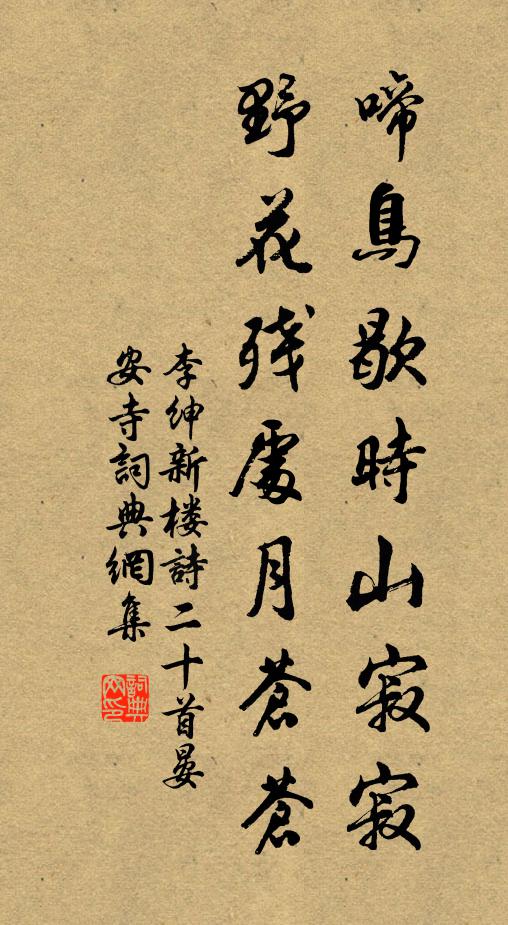 啼鳥歇時山寂寂
野花残處月蒼蒼
李紳新楼詩二十首晏
安寺詞典網集